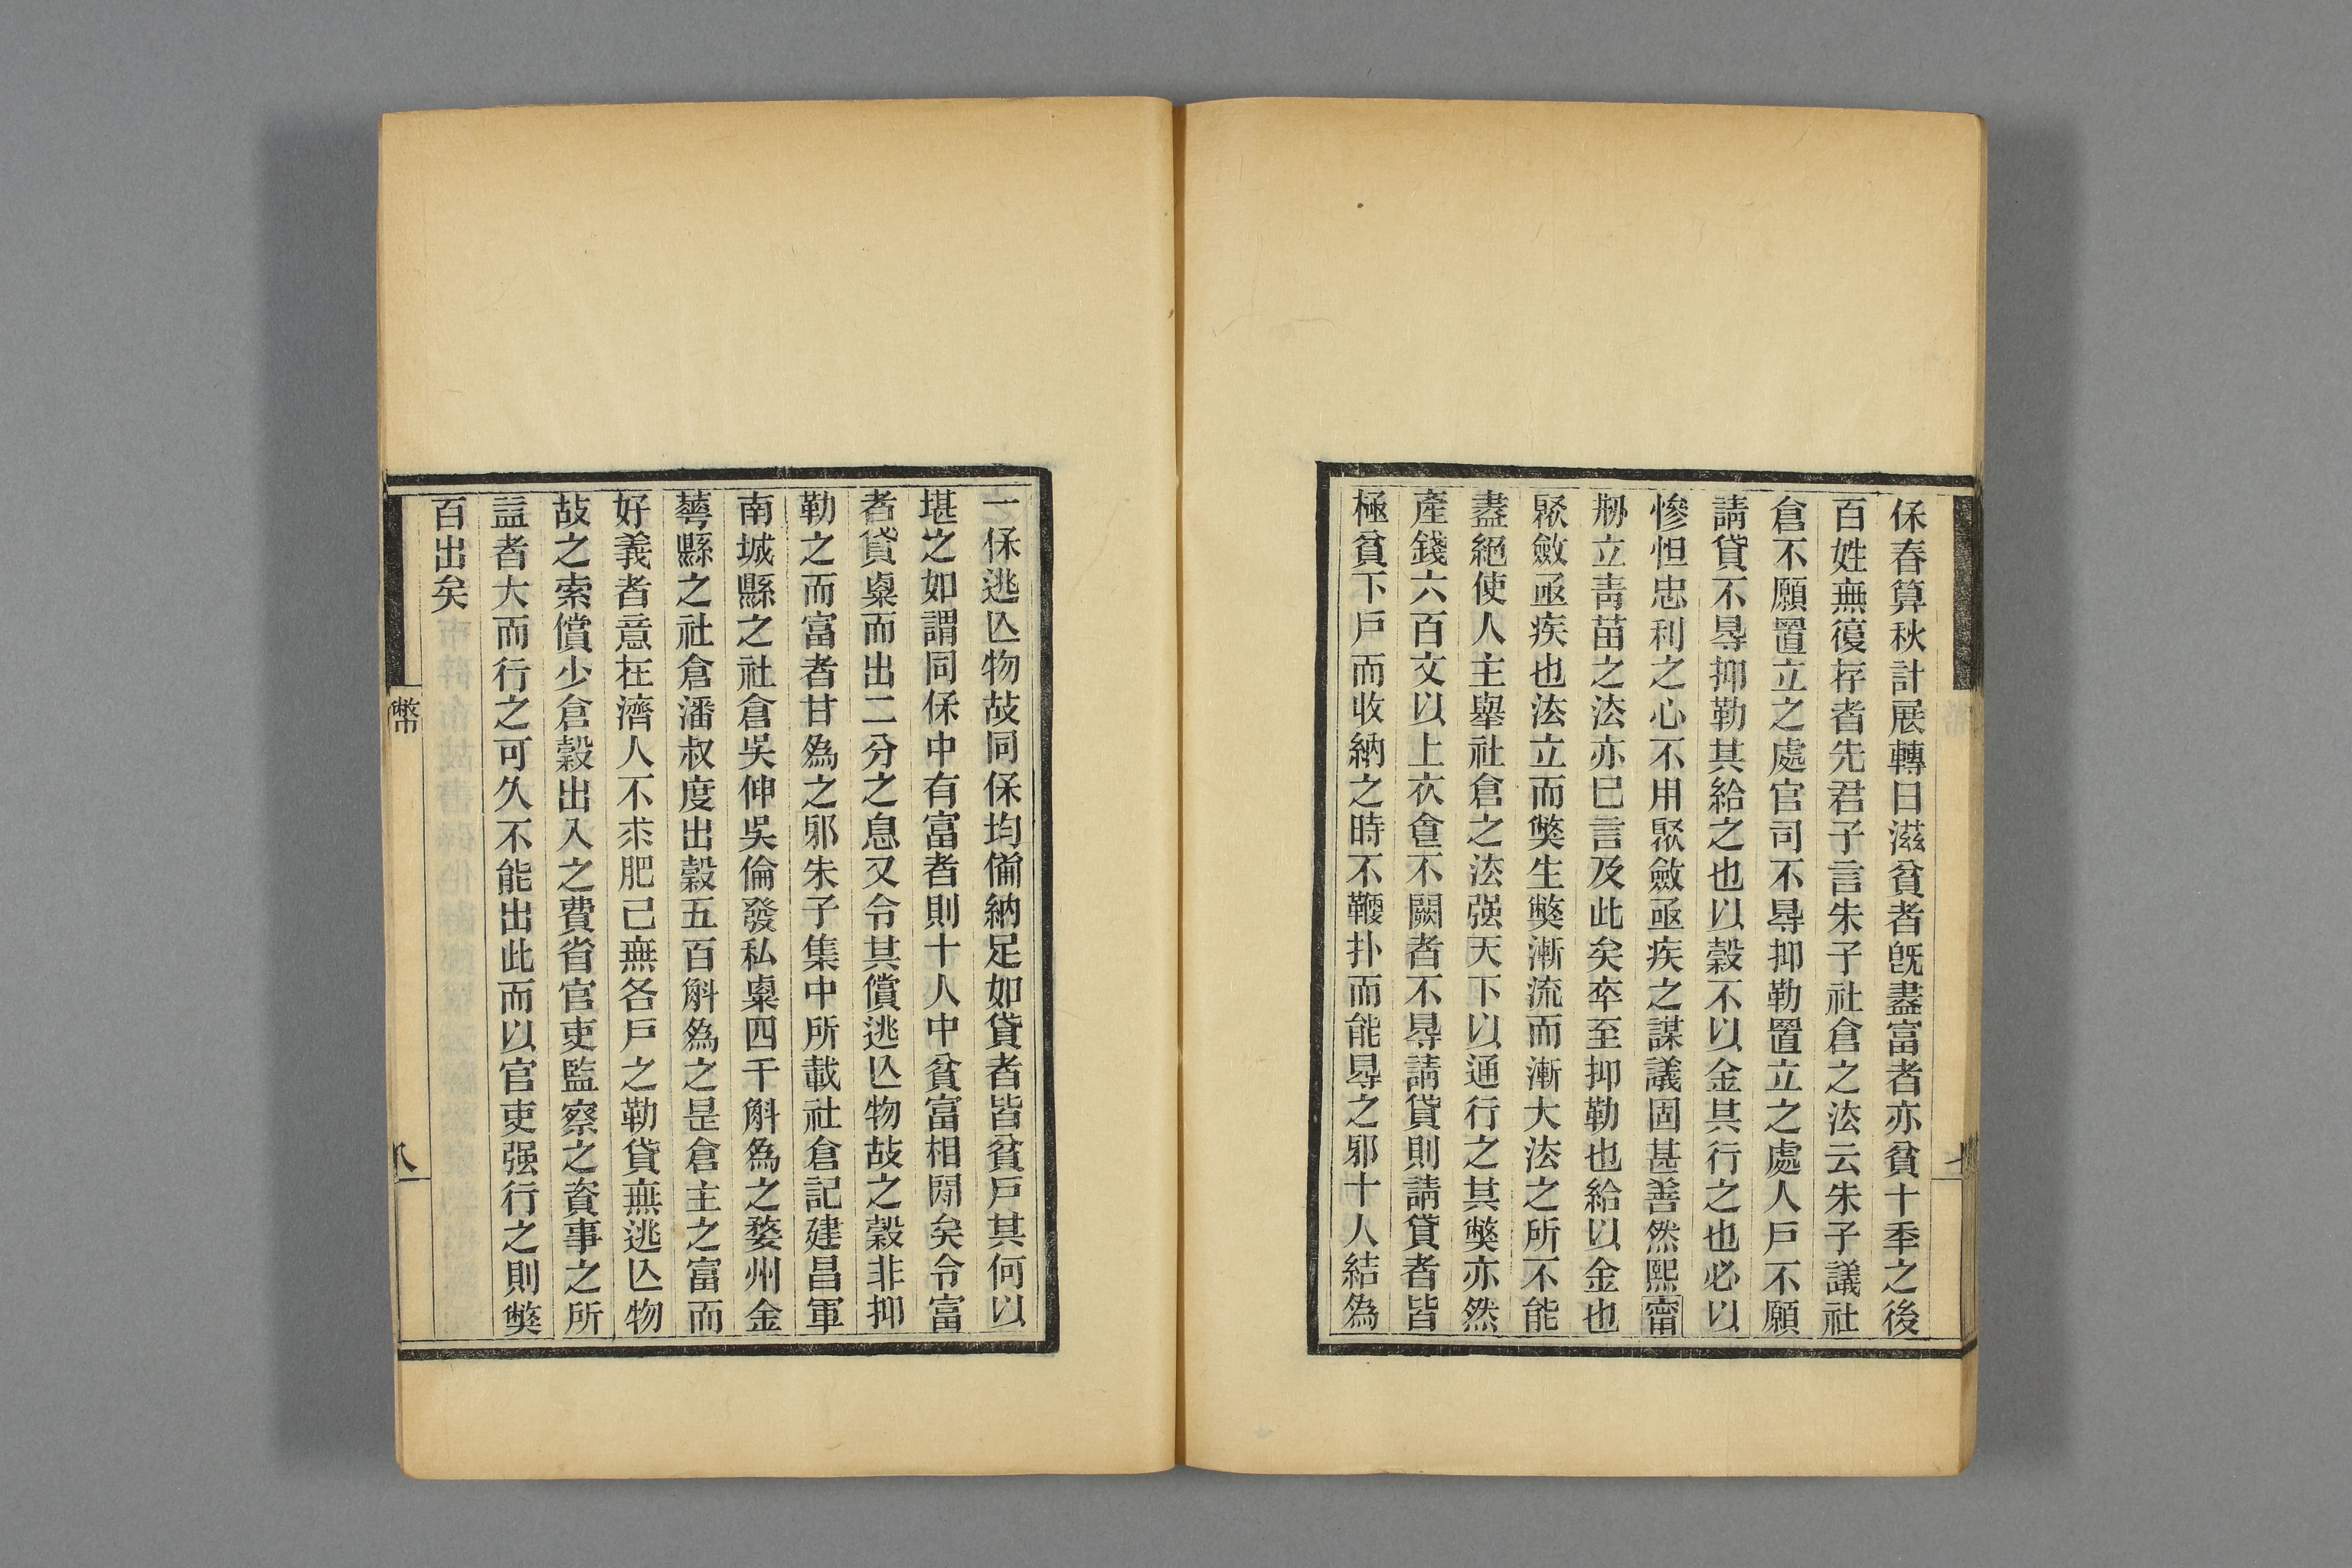 保春算秋計展轉日滋貧者旣盡富者亦貧十秊之後
百姓無復存者先君子言朱子社倉之法云朱子議社
倉不願置立之處官司不㝵抑勒置立之處人戶不願
請貸不㝵抑勒其給之也以穀不以金其行之也必以
慘怛忠利之心不用聚斂亟疾之謀議固甚善然熙甯
刱立靑苗之法亦已言及此矣卒至抑勒也給以金也
聚斂亟疾也法立而獘生獘漸流而漸大法之所不能
盡絕使人主舉社倉之法强天下以通行之其獘亦然
產錢六百文以上衣食不闕者不㝵請貸則請貸者皆
極貧下戶而收納之時不鞭扑而能㝵之邪十人結爲
一保逃亾物故同保均備納足如貸者皆貧戶其何以
堪之如謂同保中有富者則十人中貧富相閒矣令富
者貸粟而出二分之息又令其償逃亾物故之穀非抑
勒之而富者甘爲之邪朱子集中所載社倉記建昌軍
南城縣之社倉吳伸吳倫發私粟四千斛爲之婺州金
華縣之社倉潘叔度出穀五百斛爲之是倉主之富而
好義者意在濟人不求肥己無各戶之勒貸無逃亾物
故之索償少倉穀出入之費省官吏監察之資事之所
益者大而行之可久不能出此而以官吏强行之則獘
百出矣
幣
八